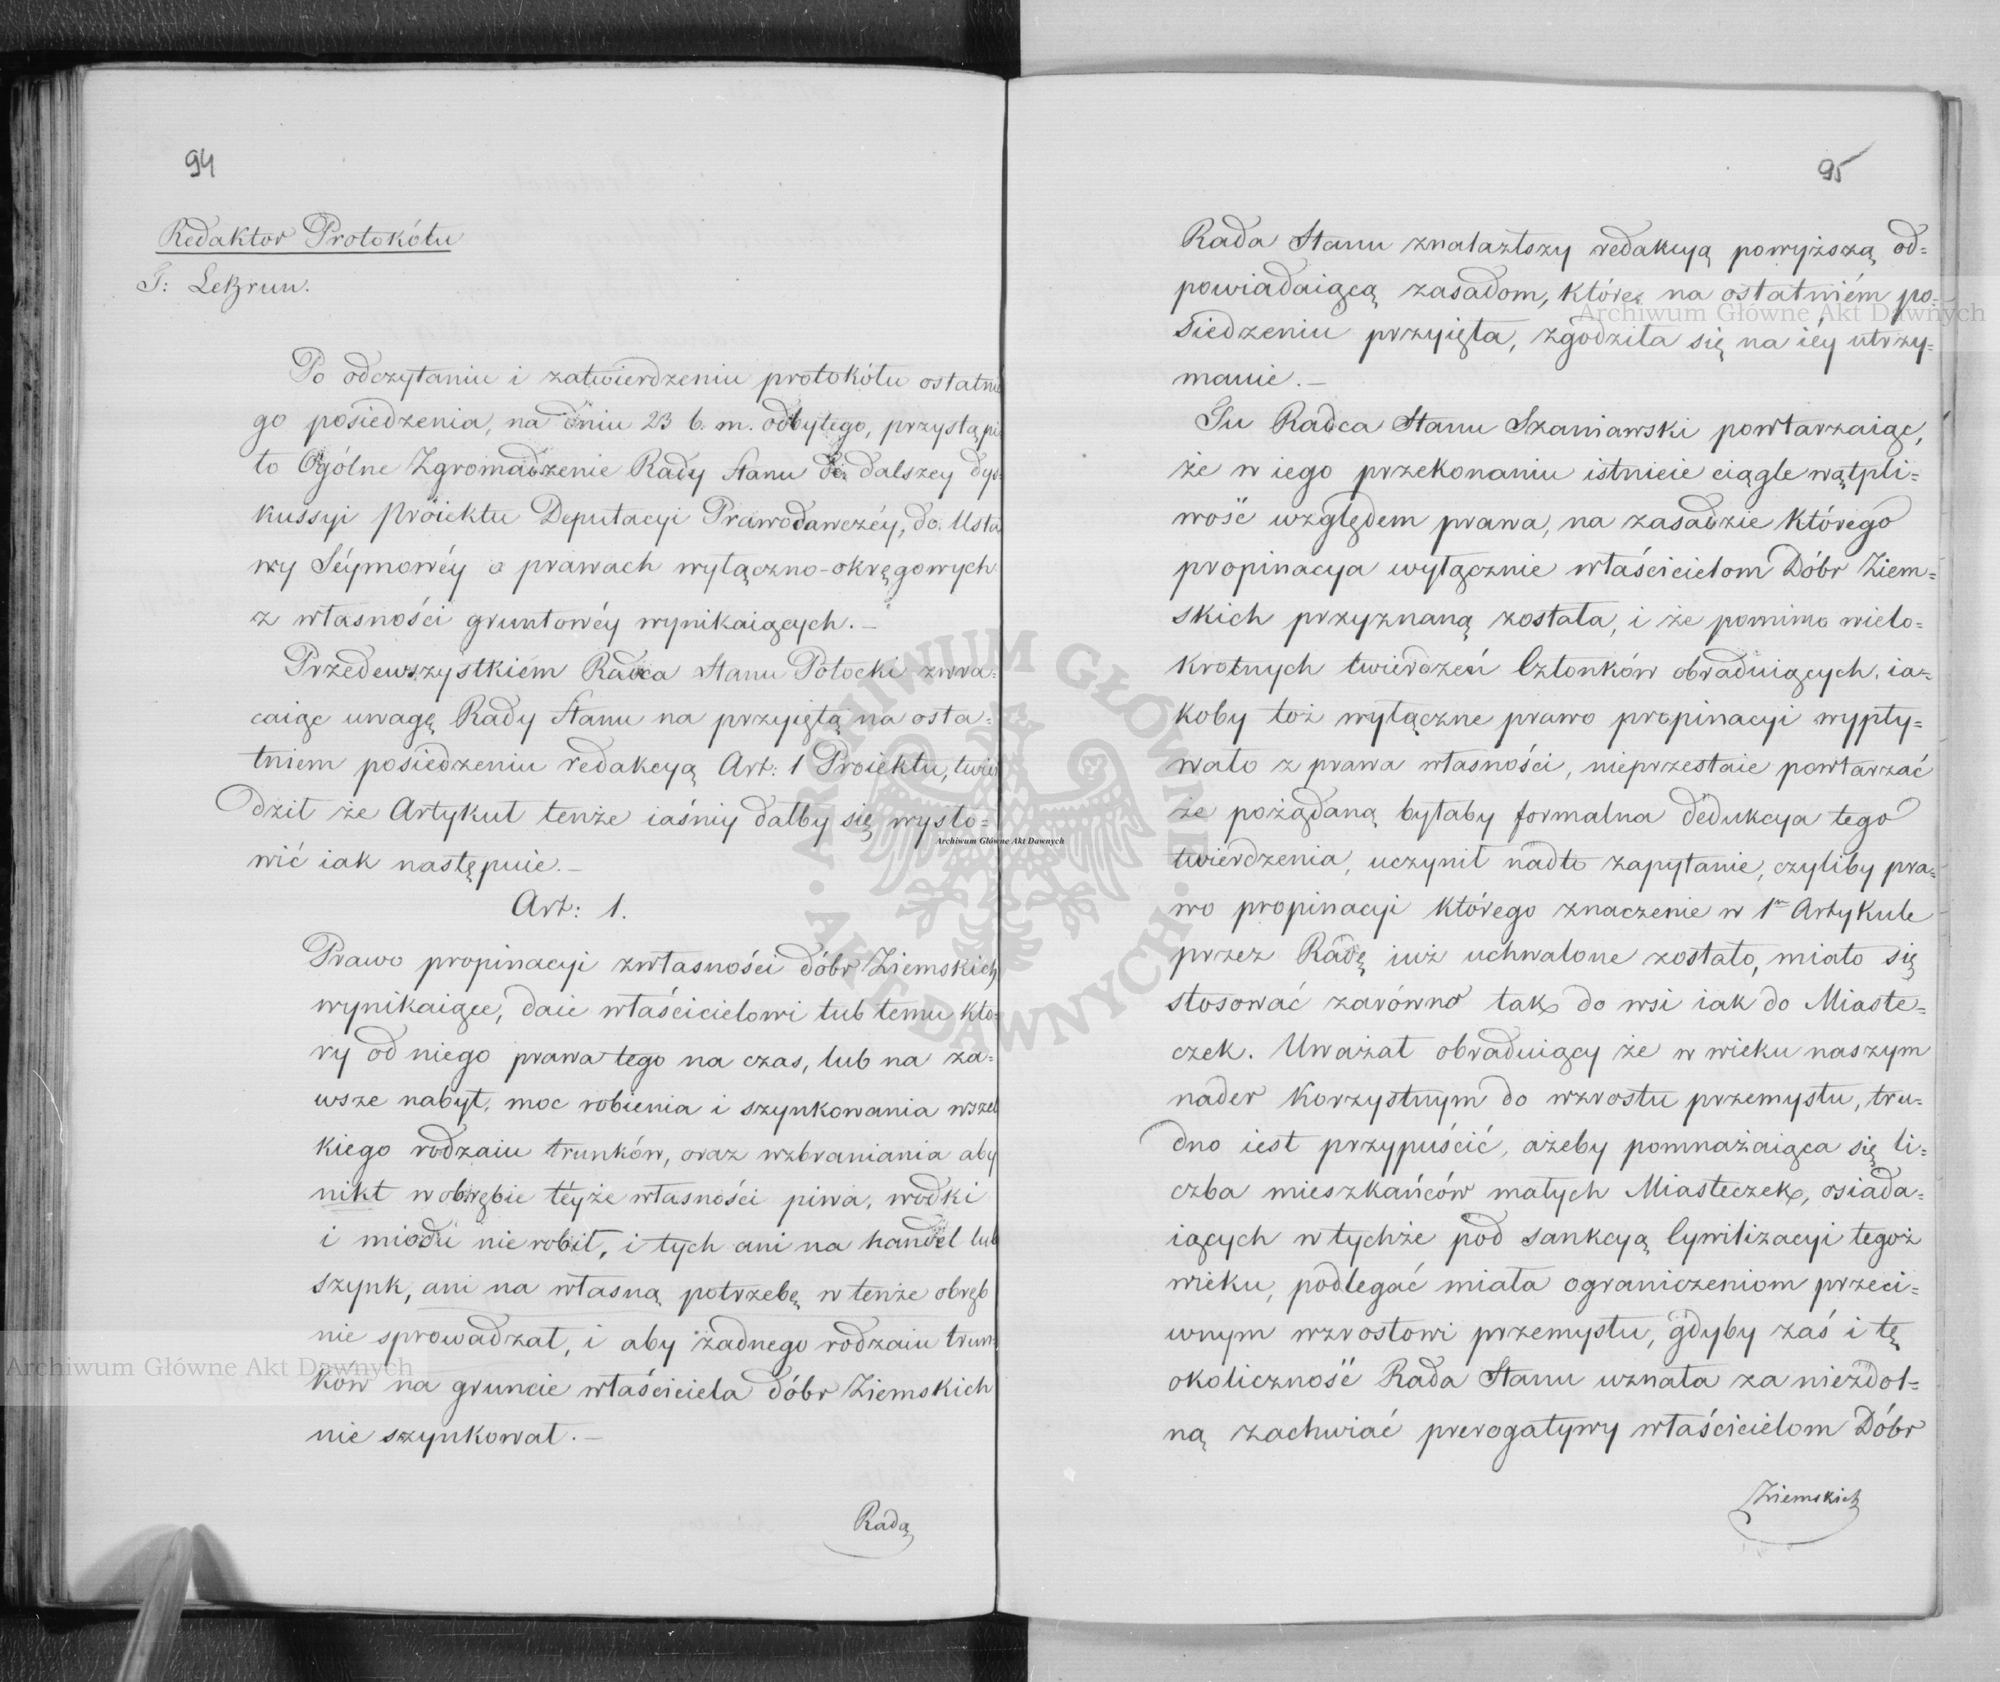 94
Redaktor Protokółu
T: LeBrun.
Po odczytaniu i zatwierdzeniu protokółu ostatnie
go posiedzenia, na dniu 23 b. m. odbytego, przystąpi
ło Ogólne Zgromadzenie Rady Stanu do dalszey dys
kussyi proiektu Deputacyi Prawodawczéy, do Usta
wy Séymowéy o prawach wyłączno-okręgowych
z własności gruntowéy wynikaiących.—
Przedewszystkiém Radca Stanu Potocki zwra=
caiąc uwagę Rady Stanu na przyiętą na osta=
tniem posiedzeniu redakcyą Art: 1 Proiektu, twier
dził że Artykuł tenże iaśniy dałby się wysło=
wić iak następuie.—
Art: 1.
Prawo propinacyi z własności dóbr Ziemskich
wynikaiące, daie właścicielowi lub temu któ=
ry od niego prawa tego na czas, lub na za=
wsze nabył, moc robienia i szynkowania wszel
kiego rodzaiu trunków, oraz wzbraniania aby
nikt w obrębie téyże własności piwa, wódki
i miodu nie robił, i tych ani na handel lub
szynk, ani na własną potrzebę w tenże obręb
nie sprowadzał, i aby żadnego rodzaiu trun
ków na gruncie właściciela dóbr Ziemskich
nie szynkował.—
Rada
95
Rada Stanu znalazłszy redakcyą powyższą od=
powiadaiącą zasadom, które na ostatniém po=
siedzeniu przyięła, zgodziła się na iéy utrzy=
manie.—
Tu Radca Stanu Szaniawski powtarzaiąc,
że w iego przekonaniu istnieie ciągle wątpli=
wość względem prawa, na zasadzie którego
propinacya wyłącznie właścicielom Dóbr Ziem=
skich przyznaną została, i że pomimo wielo=
krotnych twierdzeń Członków obraduiących, ia=
koby toż wyłączne prawo propinacyi wypły=
wało z prawa własności, nieprzestaie powtarzać
że pożądaną byłaby formalna dedukcya tego
twierdzenia, uczynił nadto zapytanie, czyliby pra=
wo propinacyi którego znaczenie w 1m Artykule
przez Radę iuż uchwalone zostało, miało się
stosować zarówno tak do wsi iak do Miaste=
czek. Uważał obraduiący że w wieku naszym
nader korzystnym do wzrostu przemysłu, tru=
dno iest przypuścić, ażeby pomnażaiąca się li=
czba mieszkańców małych Miasteczek, osiada=
iących w tychże pod sankcyą Cywilizacyi tegoż
wieku, podlegać miała ograniczeniom przeci=
wnym wzrostowi przemysłu, gdyby zaś i tę
okoliczność Rada Stanu uznała za niezdol=
ną zachwiać prerogatywy właścicielom Dóbr
Ziemskich
Archiwum Główne Akt Dawnych
Archiwum Główne Akt Dawnych
Archiwum Główne Akt Dawnych
ARCHIWUM GŁÓWNE AKT DAWNYCH